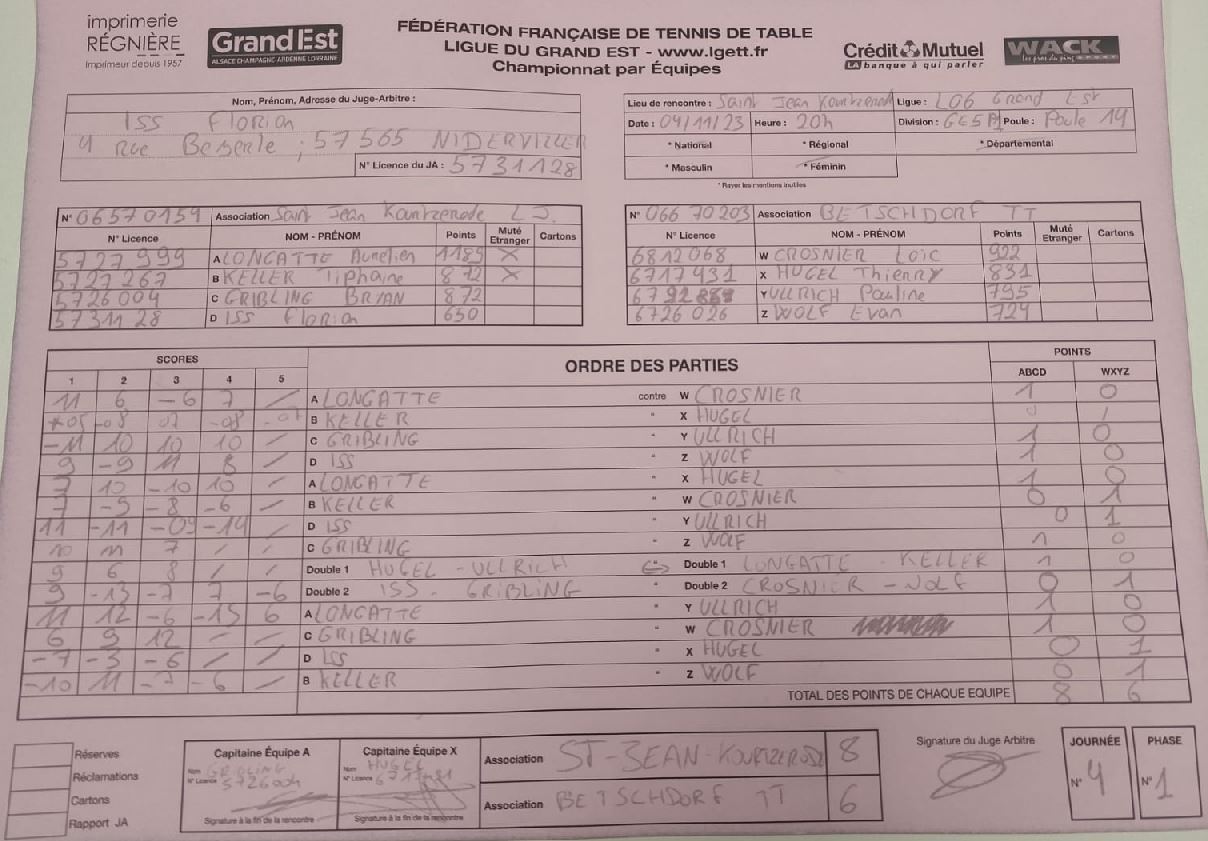 imprimerie
RÉGNIÈRE
Imprimeur depuis 1957
Grand Est
ALSACE CHAMPAGNE-ARDENNE LORRAINE
FÉDÉRATION FRANÇAISE DE TENNIS DE TABLE
LIGUE DU GRAND EST - www.lgett.fr
Championnat par Équipes
Crédit Mutuel
LA banque à qui parler
WACK
Nom, Prénom, Adresse du Juge-Arbitre :
ISS Florian
4 rue Beserle ; 57565 NIDERVILLER
N° Licence du JA : 5731128
Lieu de rencontre : Saint Jean Kourtzerod Ligue : L06 Grand Est
Date : 04/11/23 Heure : 20h Division : GE5P1 Poule : Poule 14
* National * Régional * Départemental
* Masculin * Féminin
* Rayer les mentions inutiles
N° 06570159 Association Saint Jean Kourtzerode L J.
N° Licence NOM - PRÉNOM Points Muté Etranger Cartons
5727999 A LONGATTE Aurelien 1185 X
5727267 B KELLER Tiphaine 872 X
5726004 C GRIBLING BRYAN 872
5731128 D ISS Florian 650
N° 06670203 Association BETSCHDORF TT
N° Licence NOM - PRÉNOM Points Muté Etranger Cartons
6812068 W CROSNIER Loïc 922
6717431 X HUGEL Thierry 831
Y ULLRICH Pauline 795
6726026 Z WOLF Evan 724
SCORES ORDRE DES PARTIES POINTS
1 2 3 4 5 ABCD WXYZ
11 6 -6 7 / A LONGATTE contre W CROSNIER 1 0
-08 07 -08 -07 B KELLER " X HUGEL 0 1
-11 10 10 10 / C GRIBLING " Y ULLRICH 1 0
9 -9 11 8 / D ISS " Z WOLF 1 0
7 10 -10 10 / A LONGATTE " X HUGEL 1 0
7 -5 -8 -6 / B KELLER " W CROSNIER 0 1
11 -11 -09 -14 / D ISS " Y ULLRICH 0 1
10 11 7 / / C GRIBLING " Z WOLF 1 0
9 6 8 / / Double 1 HUGEL - ULLRICH Double 1 LONGATTE - KELLER 1 0
9 -13 -7 7 -6 Double 2 ISS - GRIBLING " Double 2 CROSNIER - WOLF 0 1
11 12 -6 -15 6 A LONGATTE " Y ULLRICH 1 0
6 9 12 / / C GRIBLING " W CROSNIER 1 0
-7 -3 -6 / / D ISS " X HUGEL 0 1
-10 11 -7 -6 / B KELLER " Z WOLF 0 1
TOTAL DES POINTS DE CHAQUE EQUIPE 8 6
Réserves
Réclamations
Cartons
Rapport JA
Capitaine Équipe A
Nom GRIBLING
N° Licence 5726004
Signature à la fin de la rencontre
Capitaine Équipe X
Nom HUGEL
N° Licence 6717431
Signature à la fin de la rencontre
Association ST-JEAN-KOURTZERODE 8
Association BETSCHDORF TT 6
Signature du Juge Arbitre
JOURNÉE
N° 4
PHASE
N° 1